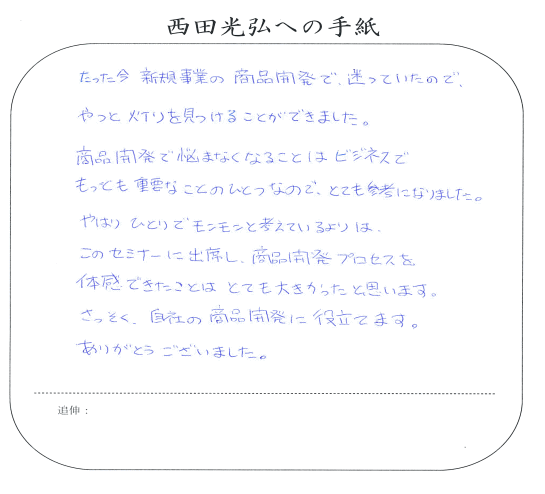 西田光弘への手紙
たった今 新規事業の 商品開発で、迷っていたので、
やっと 灯りを見つけることができました。
商品開発で悩まなくなることは ビジネスで
もっとも 重要なことのひとつなので、とても参考になりました。
やはり ひとりでモンモンと考えているよりは、
このセミナーに出席し、商品開発プロセスを
体感できたことは とても大きかったと思います。
さっそく、自社の 商品開発に 役立てます。
ありがとうございました。
追伸：